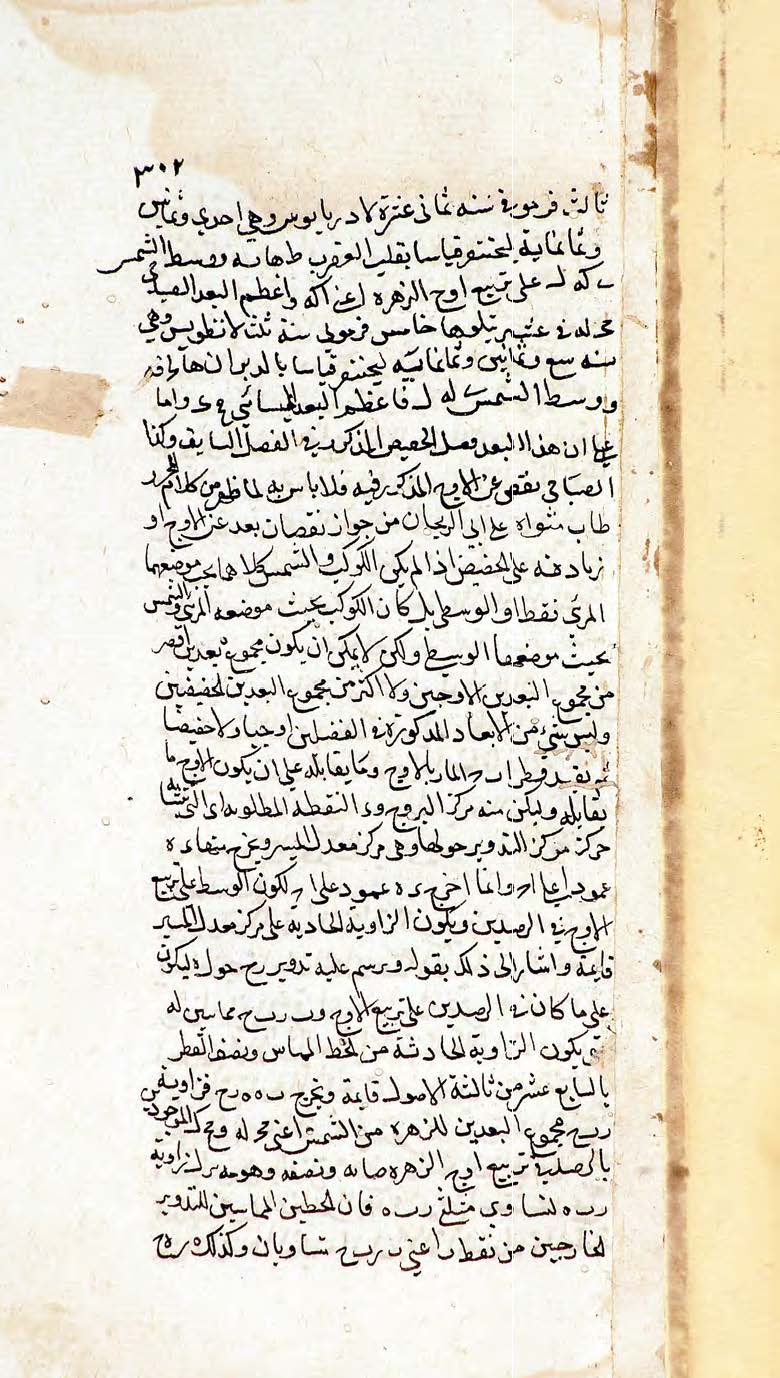 ٣٠٢
ثالث فرموني سنه ثماني عشرة لادريانوس وهي احدي وثمانين
وثمانماية لبختنصر قياسا بقلب العقرب ط ها به ووسط الشمس
ى كه لـ على تربيع اوج الزهرة اعني اكه واعظم البعد الصباحي
مح له في عشر يتلوها خامس فرموني سنة ثلث لانطونيس وهي
سنه سبع وثمانين وثمانمايه لبختنصر قياسا بالدبران
ووسط الشمس له لـ فاعظم البعد المسائي واما
ان هذا البعد وصل الحضيض المذكور في الفصل السابق وكذا
الصباحي نقص عن الاوج المذكور فيه فلا باس به لما ظهر من كلام المحرر
طاب مثواه علي ابي الريحان من جواز نقصان بعد عن الاوج او
زيادته على الحضيض اذا لم يكن الكوكب والشمس كلاهما بحيث موضعهما
المرئي فقط او الوسطي بل كان الكوكب بحيث موضعه المرئي والشمس
بحيث موضعها الوسطي ولكن لا يمكن ان يكون مجموع بعدين اقصر
من مجموع البعدين الاوجين ولا اكثر من مجموع البعدين الحضيضين
وليس شيء من الابعاد المذكورة في الفصلين اوجيا ولا حضيضيا
ثم نقد قطر ا ب ح المار بالاوج وما يقابله علي ان يكون الاوج ما
يقابله وليكن منه مركز البروج و النقطة المطلوبه اي التي يتشابه
حركة مركز التدوير حولها وهي مركز معدل المسير ونخرج منها ء ه
عمودا علي ا ح وانما اخرج ء ه عمود علي ا ح لكون الوسط على تربيع
الاوج في الرصدين ويكون الزاوية الحادثة على مركز معدل المسير
قايمة واشار الى ذلك بقوله ونرسم عليه تدوير ر ح حول ه ليكون
على ما كان في الرصدين على تربيع الاوج و ب ر ب ح مماسين له
حتى يكون الزاوية الحادثة من الخط المماس ونصف القطر
بالسابع عشر من ثالثة الاصول قايمة ونخرج ب ه ه ر ه ح فزاوية
ر ب ح مجموع البعدين للزهرة من الشمس اعني مح له و مح ك الموجودين
بالرصد في تربيع اوج الزهرة صا نه ونصفه وهو مه نر ل زاوية
ر ب ه لتساوي مثلثي ر ب ه فان الخطين المماسين للتدوير
الخارجين من نقطة ب اعني ب ر ب ح متساويان وكذلك ه ر ه ح